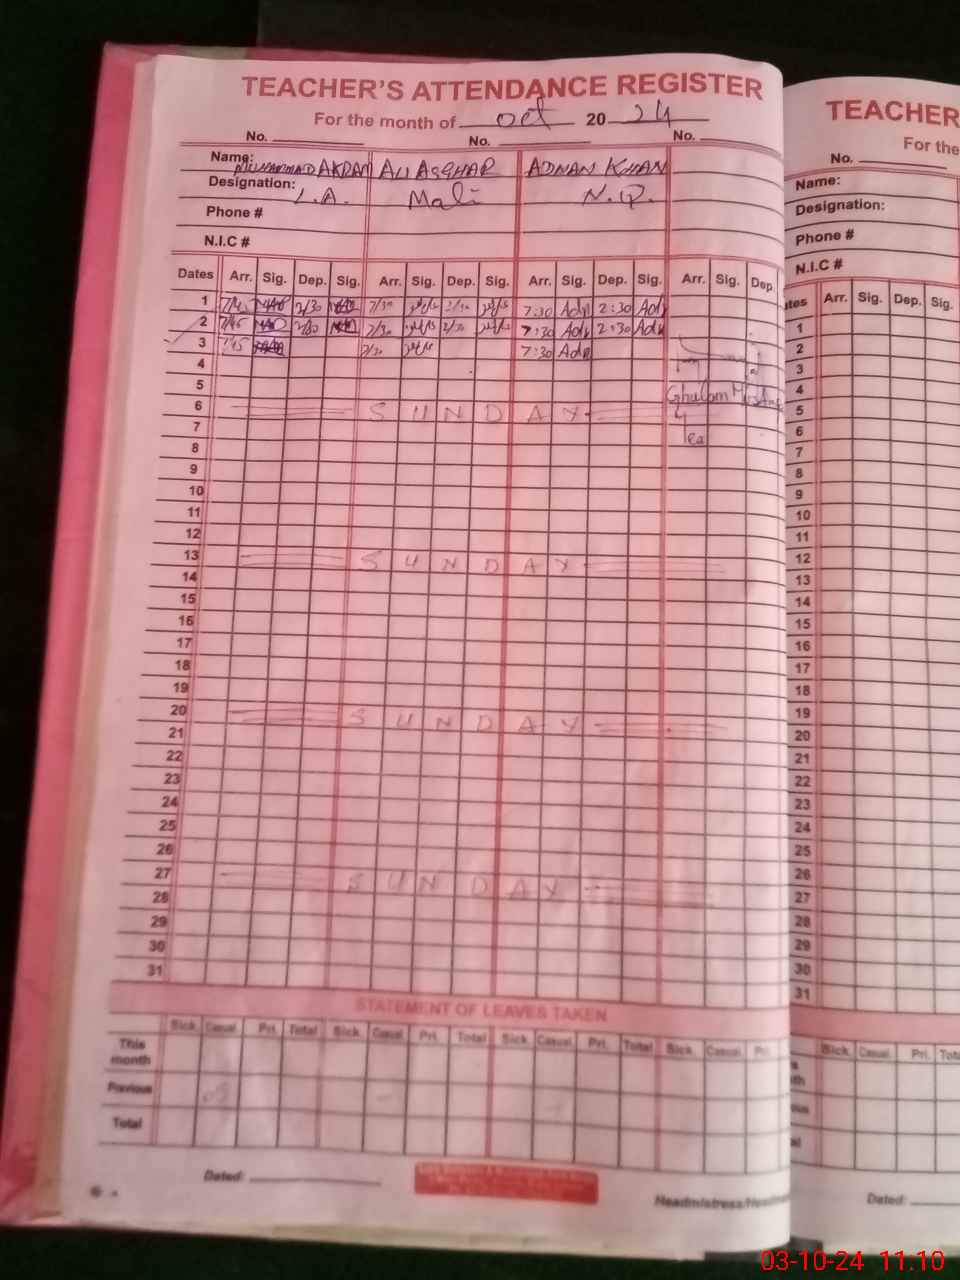 TEACHER'S ATTENDANCE REGISTER
For the month of Oct 2024
No. No. No.
Name: MUHAMMAD AKRAM ALI ASGHAR ADNAN KHAN
Designation: L.A. Mali N.Q.
Phone #
N.I.C #
Dates Arr. Sig. Dep. Sig. Arr. Sig. Dep. Sig. Arr. Sig. Dep. Sig. Arr. Sig. Dep.
1 7/45 2/30 7/30 2/30 7:30 Adn 2:30 Adn
2 7/45 2/30 7/30 2/30 7:30 Adn 2:30 Adn
3 7/45 7/30 7:30 Adn
4
5 Ghulam
6 SUNDAY
7
8
9
10
11
12
13 SUNDAY
14
15
16
17
18
19
20 SUNDAY
21
22
23
24
25
26
27 SUNDAY
28
29
30
31
STATEMENT OF LEAVES TAKEN
Sick. Casual. Pri. Total Sick. Casual. Pri. Total Sick. Casual. Pri. Total Sick. Casual. Pri.
This month
Previous
Total
Dated:
TEACHER
For the
No.
Name:
Designation:
Phone #
N.I.C #
Arr. Sig. Dep. Sig.
1
2
3
4
5
6
7
8
9
10
11
12
13
14
15
16
17
18
19
20
21
22
23
24
25
26
27
28
29
30
31
Sick. Casual. Pri.
Dated:
03-10-24 11:10